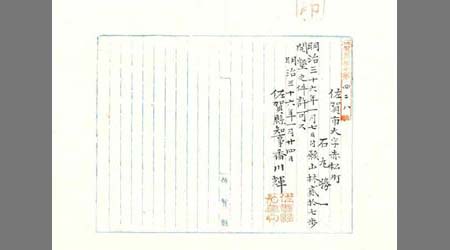 印
四二八
佐賀市大字赤松町
石丸勝一
明治三十六年一月七日付願山林貳拾七歩
開墾之件許可ス
明治三十六年一月廿四日
佐賀縣知事香川輝
佐賀縣